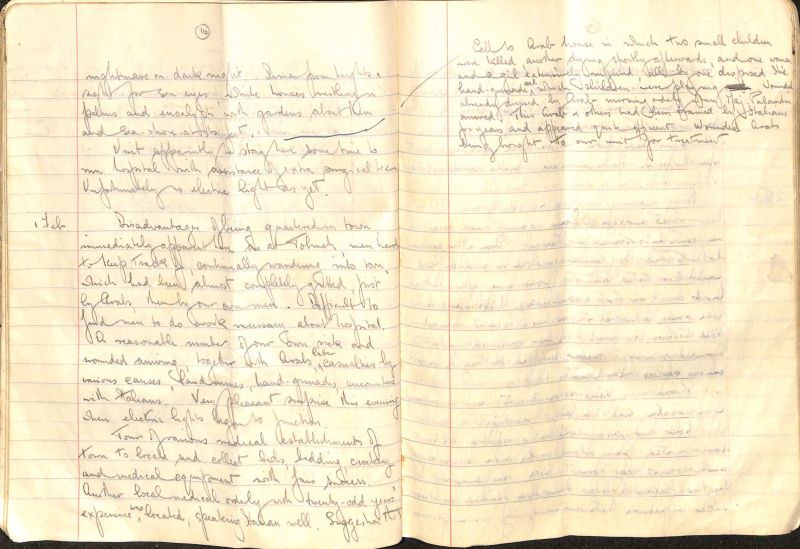 16
nightmare on dark night. Derna from heights a
sight for sore eyes, white houses nestling in
palms and eucalypti with gardens about them
and sea-shore
Unit apparently to stay here some time to
run hospital with assistance of extra surgical team.
Unfortunately no electric light as yet.
1 Feb Disadvantages of being quartered in town
immediately apparent here as at Tobruch, men hard
to keep track of, continually wandering into town,
which had been almost completely gutted, first
by Arabs, then by our own men. Difficult to
find men to do work necessary about hospital.
A reasonable number of our own sick and
wounded arriving together with Arabs, latter casualties by
various causes, land-mines, hand-grenades, encounters
with Italians. Very pleasant surprise this evening
when electric lights began to function.
Tour of various medical establishments of
town to locate and collect beds, bedding, crockery
and medical equipment with fair success.
Another local medical orderly with twenty-odd years'
experience was located, speaking Italian well. Suggested that
Call to Arab house in which two small children
were killed another dying shortly afterwards, and one woman
and a girl extensively injured, all by one
hand-grenade with which children were playing. Wounds
already dressed by Arab nursing orderly when Maj.
arrived. This Arab & others had been trained by Italians
for years and appeared quite efficient. Wounded Arabs
being brought to our unit for treatment.